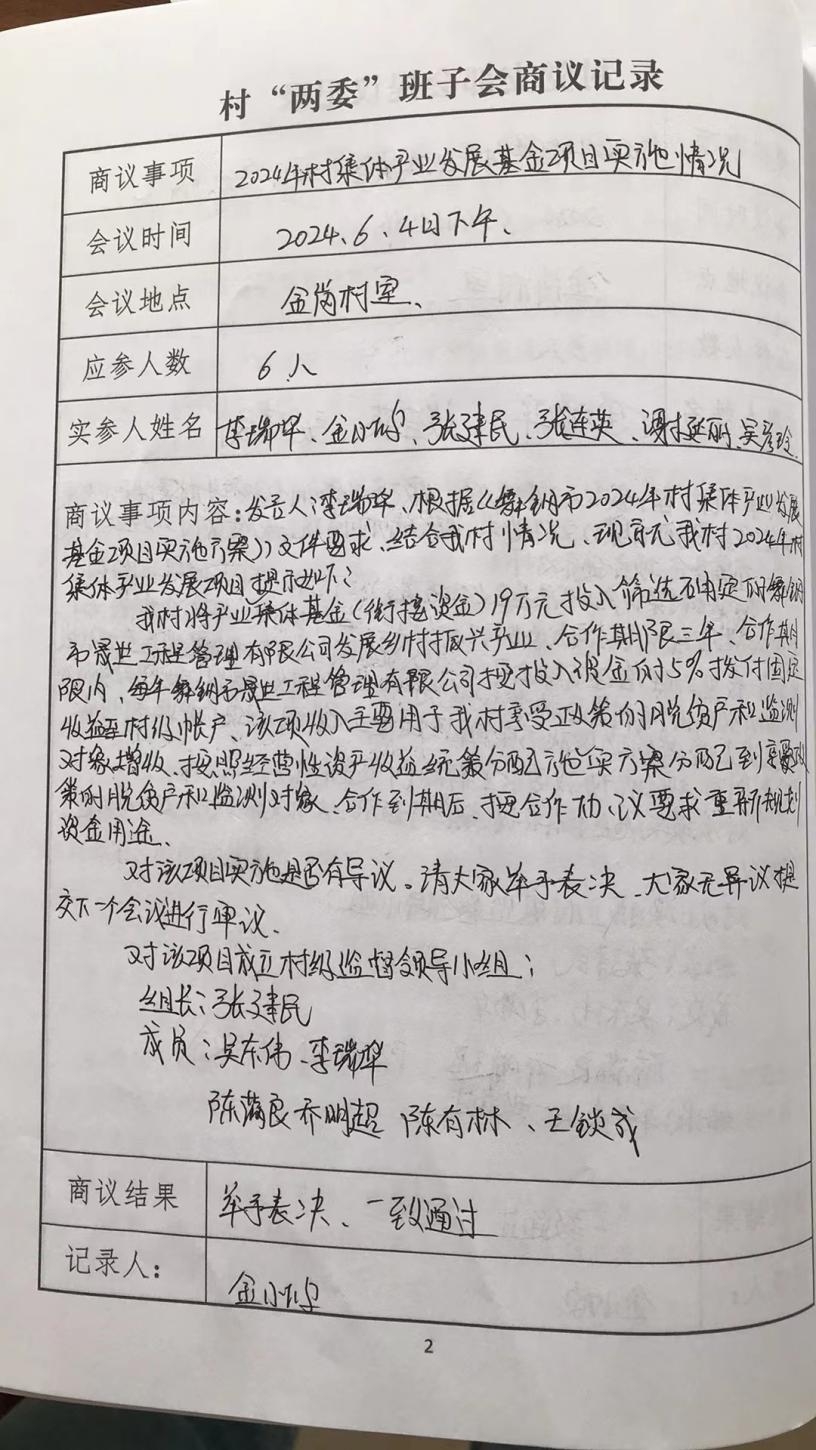 村“两委”班子会商议记录
商议事项 2024年村集体产业发展基金项目实施情况
会议时间 2024、6、4日下午、
会议地点 金岗村室、
应参人数 6人
实参人姓名 李瑞华、金小 、张建民、张连英、 延丽、吴彦玲
商议事项内容：发言人：李瑞华、根据《舞钢市2024年村集体产业发展
基金项目实施方案》文件要求、结合我村情况、现 我村2024年村
集体产业发展项目提示如下：
我村将产业集体基金(衔接资金)19万元投入筛选 确定的舞钢
市晟世工程管理有限公司发展乡村振兴产业、合作期限三年、合作期
限内、每年舞钢市晟世工程管理有限公司按投入资金的5%拨付固定
收益至村级帐户、该项收入主要用于我村享受政策的脱贫户和监测
对象增收、按照经营性资产收益统筹分配实施方案分配到享受政
策的脱贫户和监测对象、合作到期后、按合作协议要求重新规划
资金用途、
对该项目实施是否有异议。请大家举手表决、大家无异议提
交下一个会议进行审议、
对该项目成立村级监督领导小组：
组长：张建民
成员：吴东伟、李瑞华
陈满良 乔明超 陈有林、王锁成
商议结果 举手表决、一致通过
记录人： 金小
2